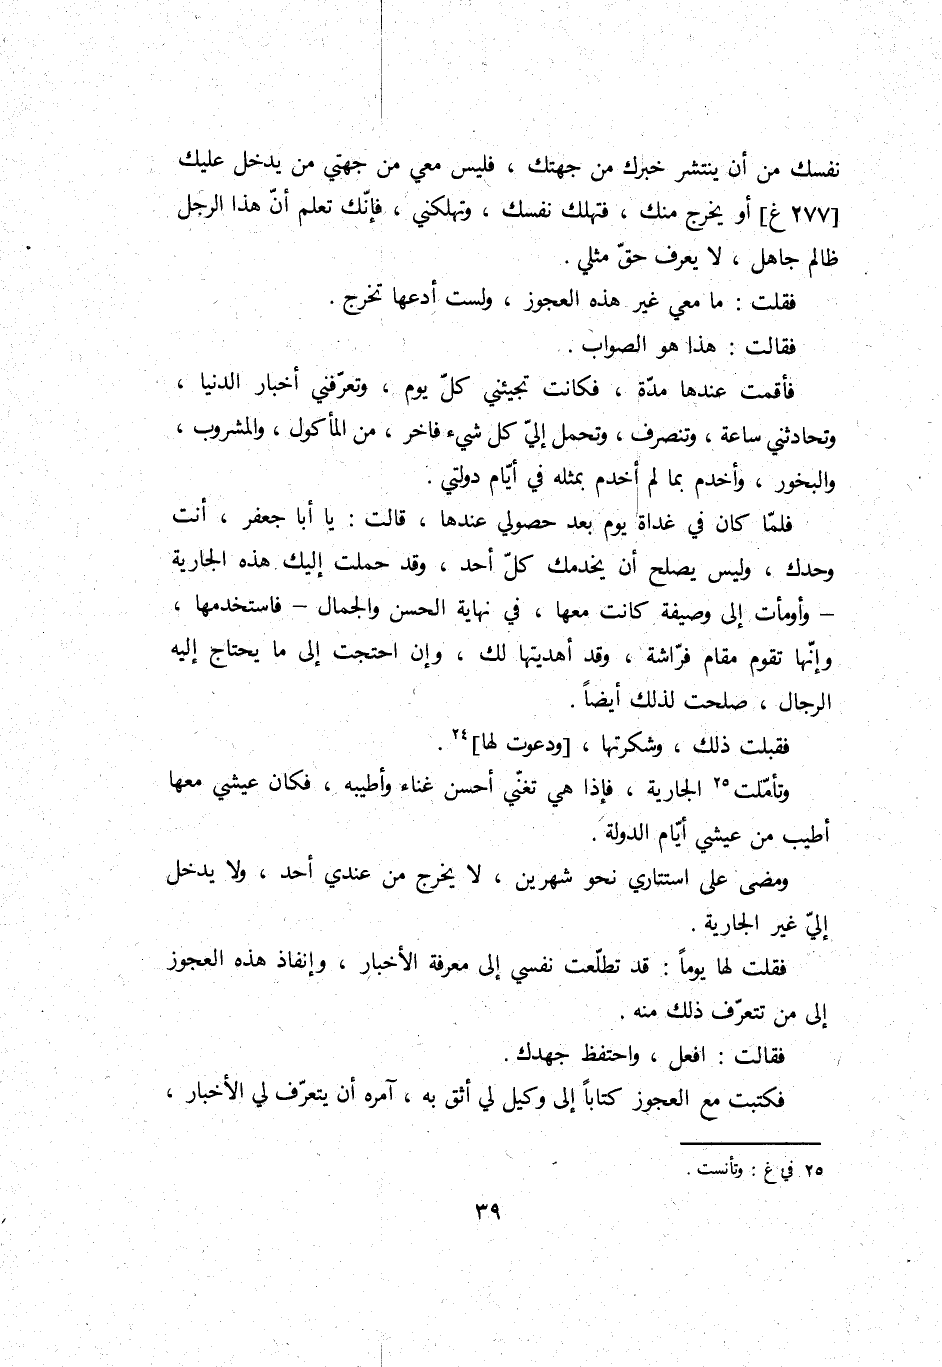 نفسك من أن ينتشر خبرك من جهتك ، فليس معي من جهتي من يدخل عليك
[٢٧٧ غ] أو يخرج منك ، فتهلك نفسك ، وتهلكني ، فإنّك تعلم أنّ هذا الرجل
ظالم جاهل ، لا يعرف حقّ مثلي .
فقلت : ما معي غير هذه العجوز ، ولست أدعها تخرج .
فقالت : هذا هو الصواب .
فأقمت عندها مدّة ، فكانت تجيئني كلّ يوم ، وتعرّفني أخبار الدنيا ،
وتحادثني ساعة ، وتنصرف ، وتحمل إليّ كل شيء فاخر ، من المأكول ، والمشروب ،
والبخور ، وأخدم بما لم أخدم بمثله في أيّام دولتي .
فلمّا كان في غداة يوم بعد حصولي عندها ، قالت : يا أبا جعفر ، أنت
وحدك ، وليس يصلح أن يخدمك كلّ أحد ، وقد حملت إليك هذه الجارية
– وأومأت إلى وصيفة كانت معها ، في نهاية الحسن والجمال – فاستخدمها ،
وإنّها تقوم مقام فرّاشة ، وقد أهديتها لك ، وإن احتجت إلى ما يحتاج إليه
الرجال ، صلحت لذلك أيضاً .
فقبلت ذلك ، وشكرتها ، [ودعوت لها]٢٤ .
وتأمّلت٢٥ الجارية ، فإذا هي تغنّي أحسن غناء وأطيبه ، فكان عيشي معها
أطيب من عيشي أيّام الدولة .
ومضى على استتاري نحو شهرين ، لا يخرج من عندي أحد ، ولا يدخل
إليّ غير الجارية .
فقلت لها يوماً : قد تطلّعت نفسي إلى معرفة الأخبار ، وإنفاذ هذه العجوز
إلى من تتعرّف ذلك منه .
فقالت : افعل ، واحتفظ جهدك .
فكتبت مع العجوز كتاباً إلى وكيل لي أثق به ، آمره أن يتعرّف لي الأخبار ،
٢٥ في غ : وتأنست .
٣٩